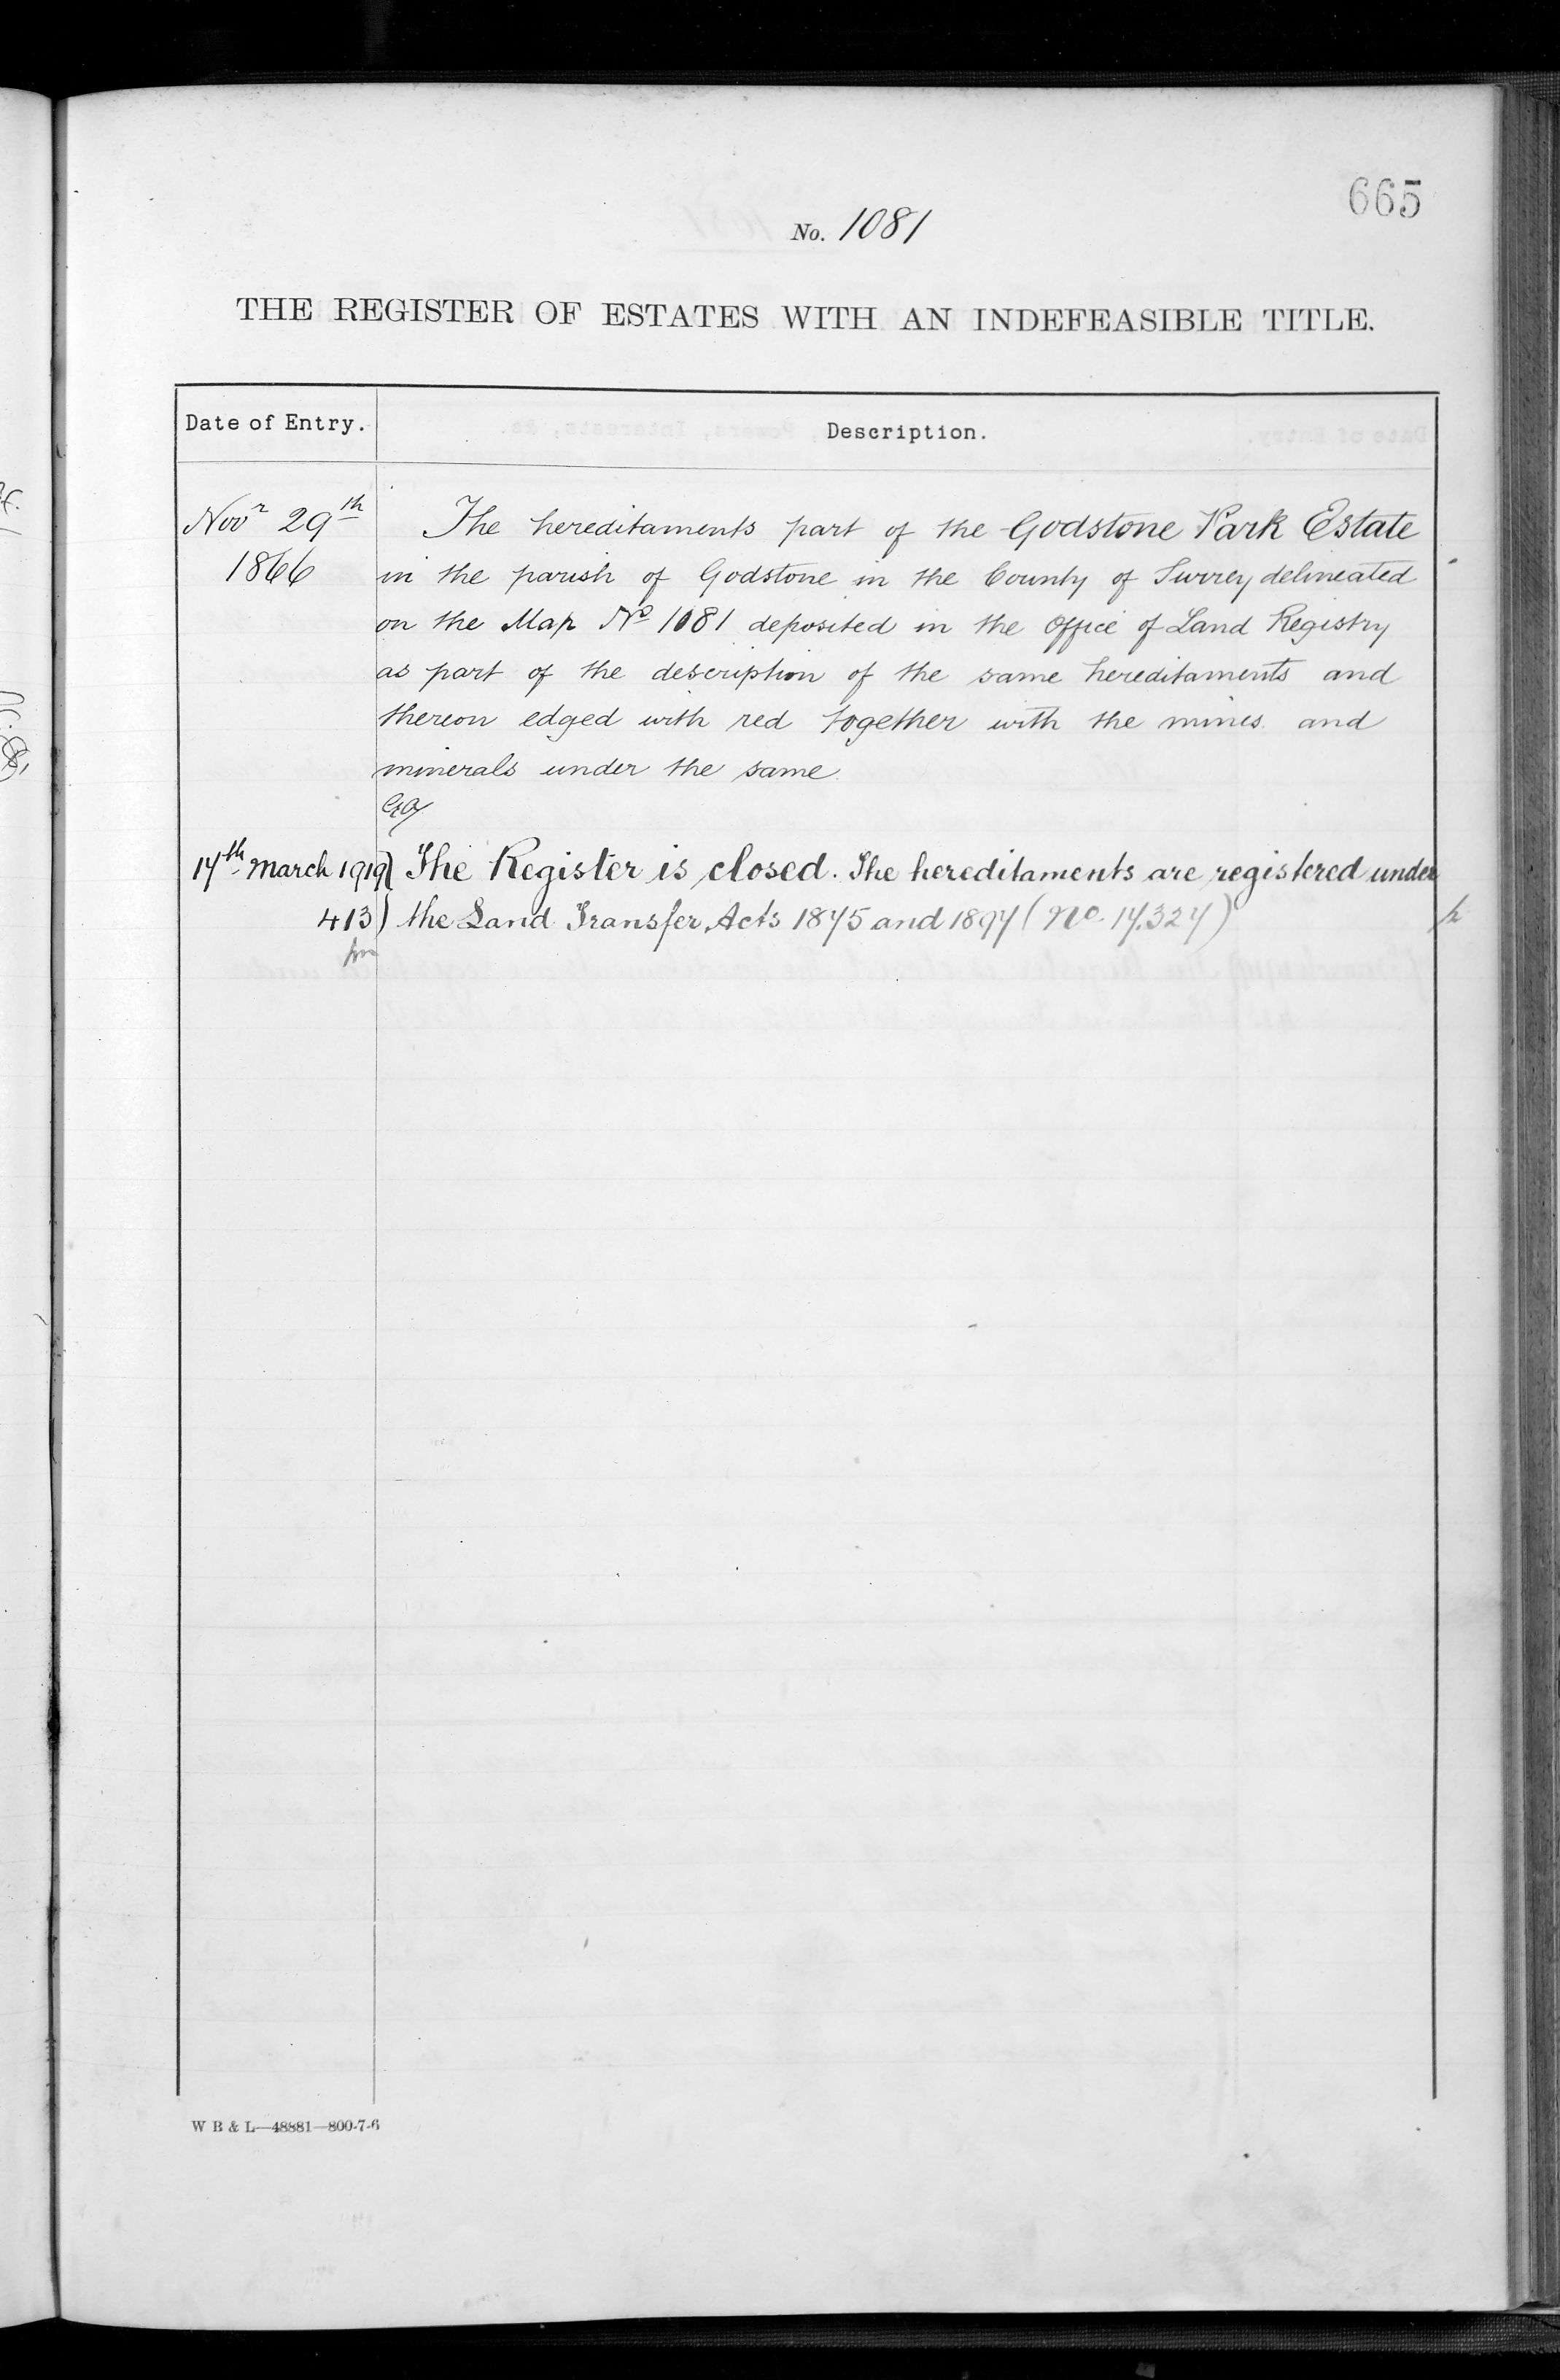 665
No. 1081
THE REGISTER OF ESTATES WITH AN INDEFEASIBLE TITLE.
Date of Entry.
Description.
Novr 29th
1866
The hereditaments part of the Godstone Park Estate
in the parish of Godstone in the County of Surrey delineated
on the Map No 1081 deposited in the Office of Land Registry
as part of the description of the same hereditaments and
thereon edged with red together with the mines and
minerals under the same
17th March 1919
413
The Register is closed. The hereditaments are registered under
the Land Transfer Acts 1875 and 1897 (No. 17.327)
W B & L—48881—800-7-6